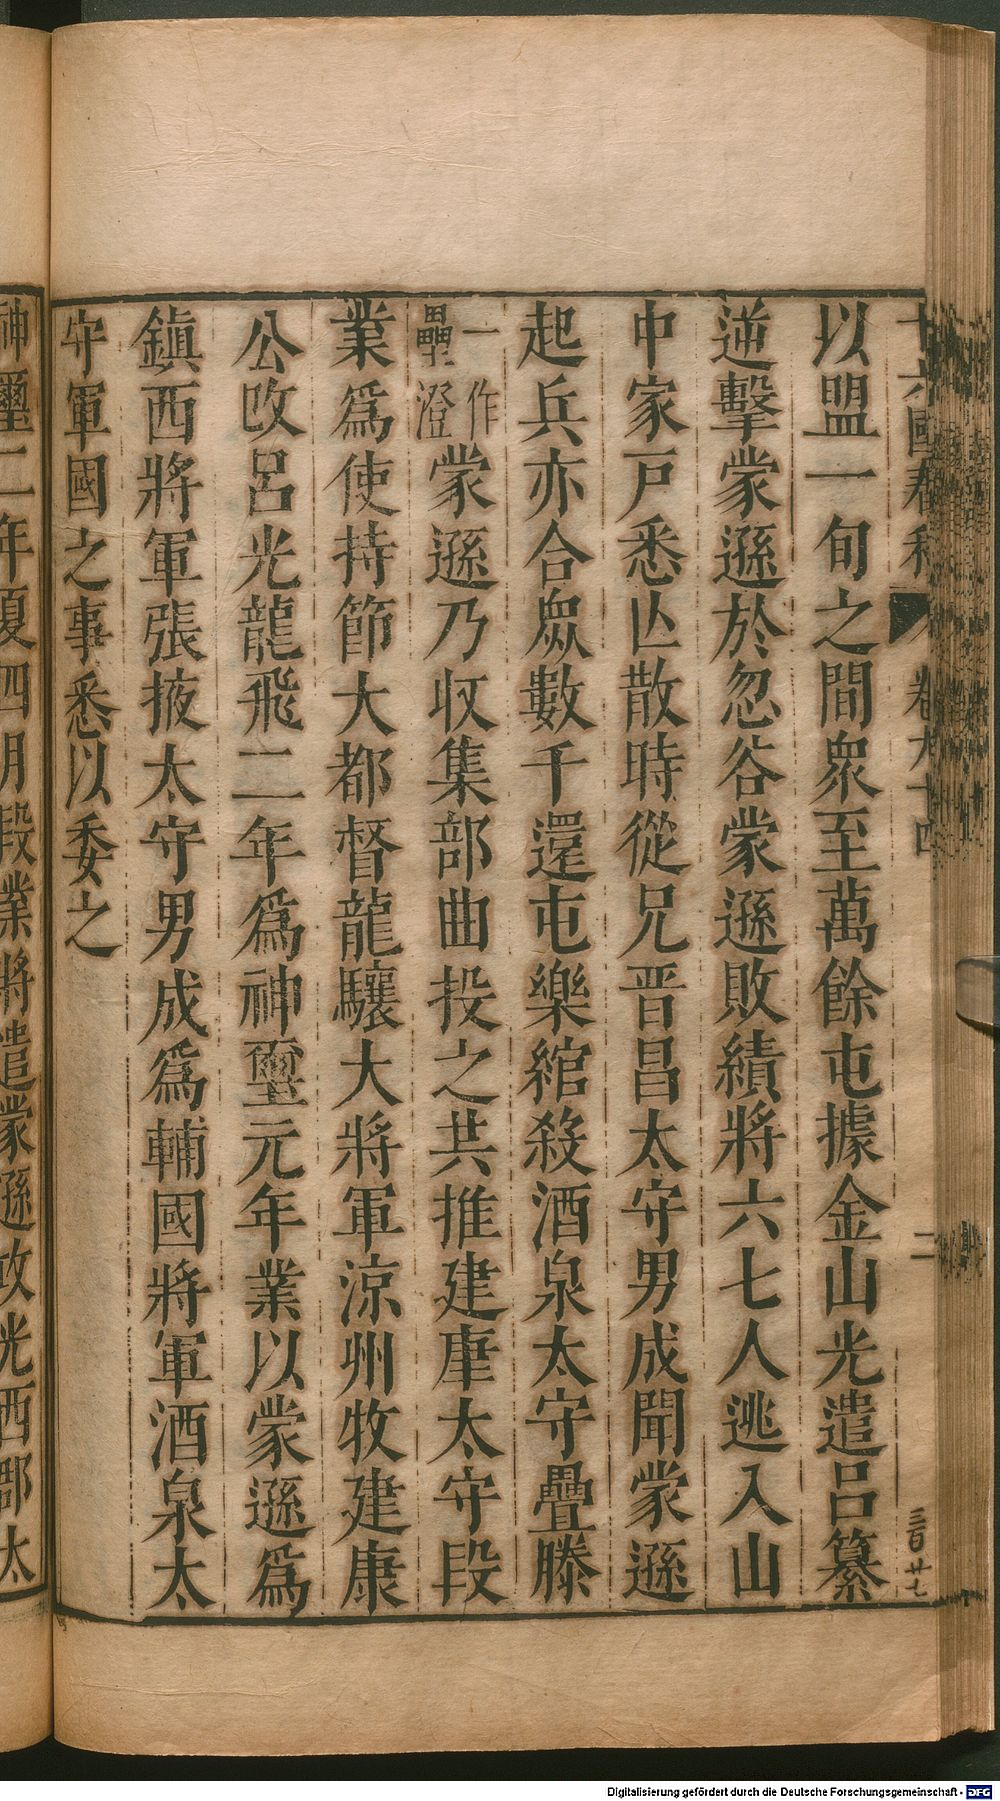 十六國春秋 卷九十四 二 三百廿七
以盟一旬之間衆至萬餘屯據金山光遣吕纂
逆擊蒙遜於忽谷蒙遜敗績將六七人逃入山
中家戸悉亾散時從兄晋昌太守男成聞蒙遜
起兵亦合衆數千還屯樂綰殺酒泉太守疊滕
一作壘澄蒙遜乃収集部曲投之共推建康太守段
業爲使持節大都督龍驤大將軍涼州牧建康
公改吕光龍飛二年爲神璽元年業以蒙遜爲
鎮西將軍張掖太守男成爲輔國將軍酒泉太
守軍國之事悉以委之
神璽二年夏四月段業將遣蒙遜攻光西郡太
Digitalisierung gefördert durch die Deutsche Forschungsgemeinschaft - DFG